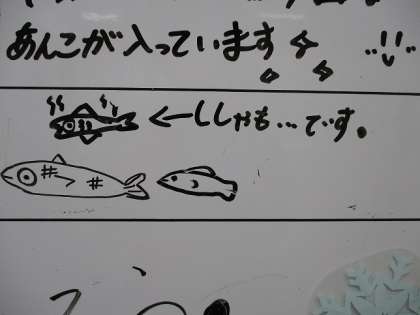 あんこが入っています
←ししゃも…です。